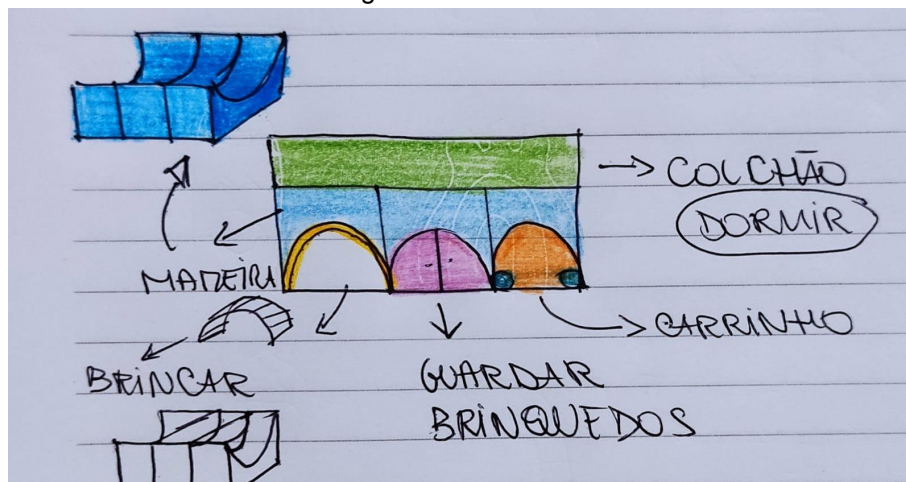 COLCHÃO
DORMIR
MADEIRA
CARRINHO
BRINCAR
GUARDAR
BRINQUEDOS